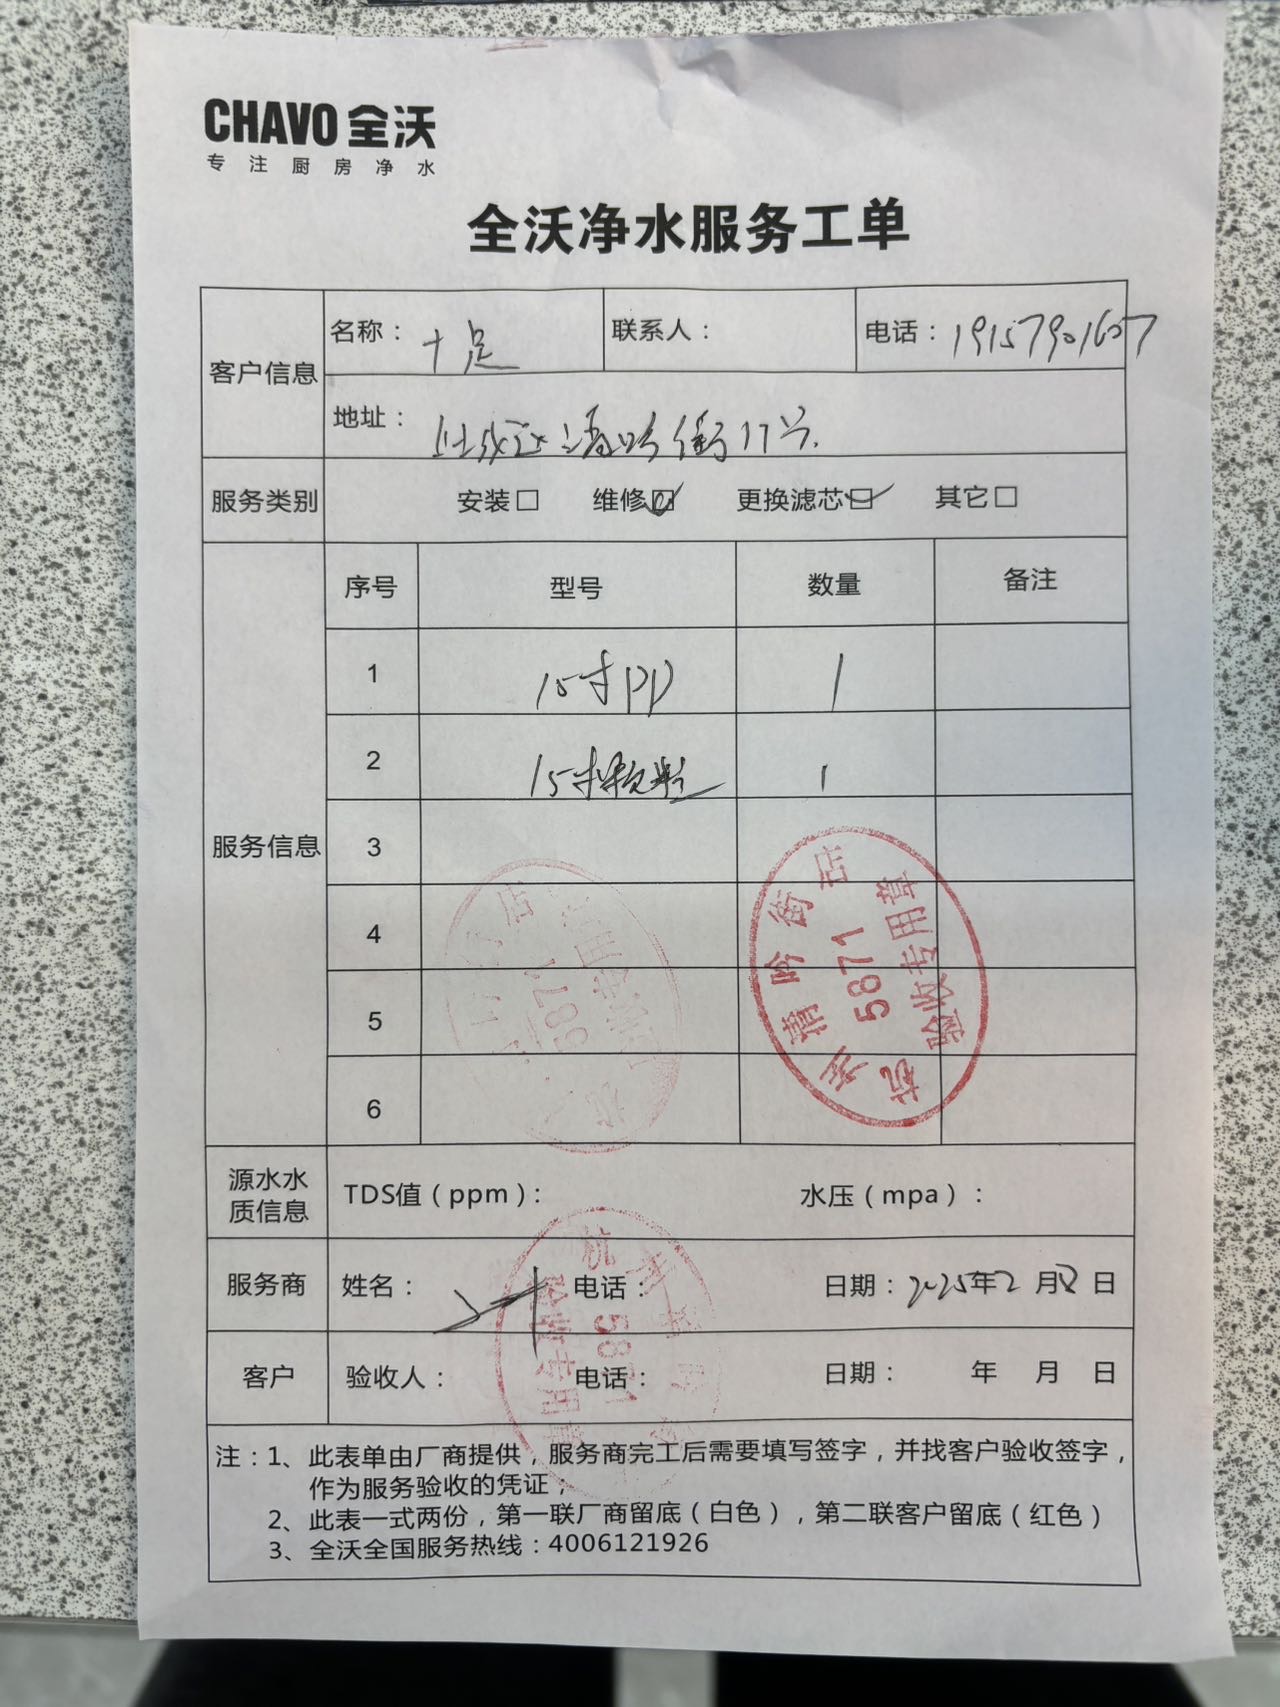 CHAVO 全沃
专注厨房净水
全沃净水服务工单
客户信息
名称：十足 联系人： 电话：19157901607
地址：上城区清吟街17号.
服务类别 安装□ 维修☑ 更换滤芯☑ 其它□
服务信息
序号 型号 数量 备注
1 15寸PP 1
2 15寸颗粒 1
3
4
5
6
杭州清吟街店
5871
验收专用章
源水水质信息 TDS值（ppm）： 水压（mpa）：
服务商 姓名： 电话： 日期：2025年2月8日
客户 验收人： 电话： 日期： 年 月 日
杭州清吟
5871
验收专用章
注：1、此表单由厂商提供，服务商完工后需要填写签字，并找客户验收签字，
作为服务验收的凭证；
2、此表一式两份，第一联厂商留底（白色），第二联客户留底（红色）
3、全沃全国服务热线：4006121926